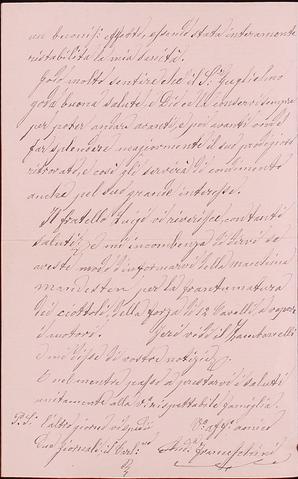 un buonissi effetto, essend stata interamente
ristabilita la mia sanità.
Godo molto sentire che il S.r Guglielmo
goda buona salute, e Dio ce lo conservi sempre
per poter andare avanti, e più avanti onde
far splendere maggiormente il suo prodigioso
ritrovato, e così gli servirà di condimento
anche pel suo grande interesse.
Il fratello Luigi vi riverisce, con tanti
saluti, e mi incombenza di dirvi se
aveste modo d'informarvi della macchina
per la frantumatura
dei ciottoli, della forza di 12 Cavalli, a vapore
o motori. Jeri vidi il
e mi disse di vostre notizie.
E nel mentre passo a prestarvi i saluti
unitamente alla V.a rispettabile famiglia.
P.S. l'altro giorno vi spedii V.o aff.o amico
due giornali: il